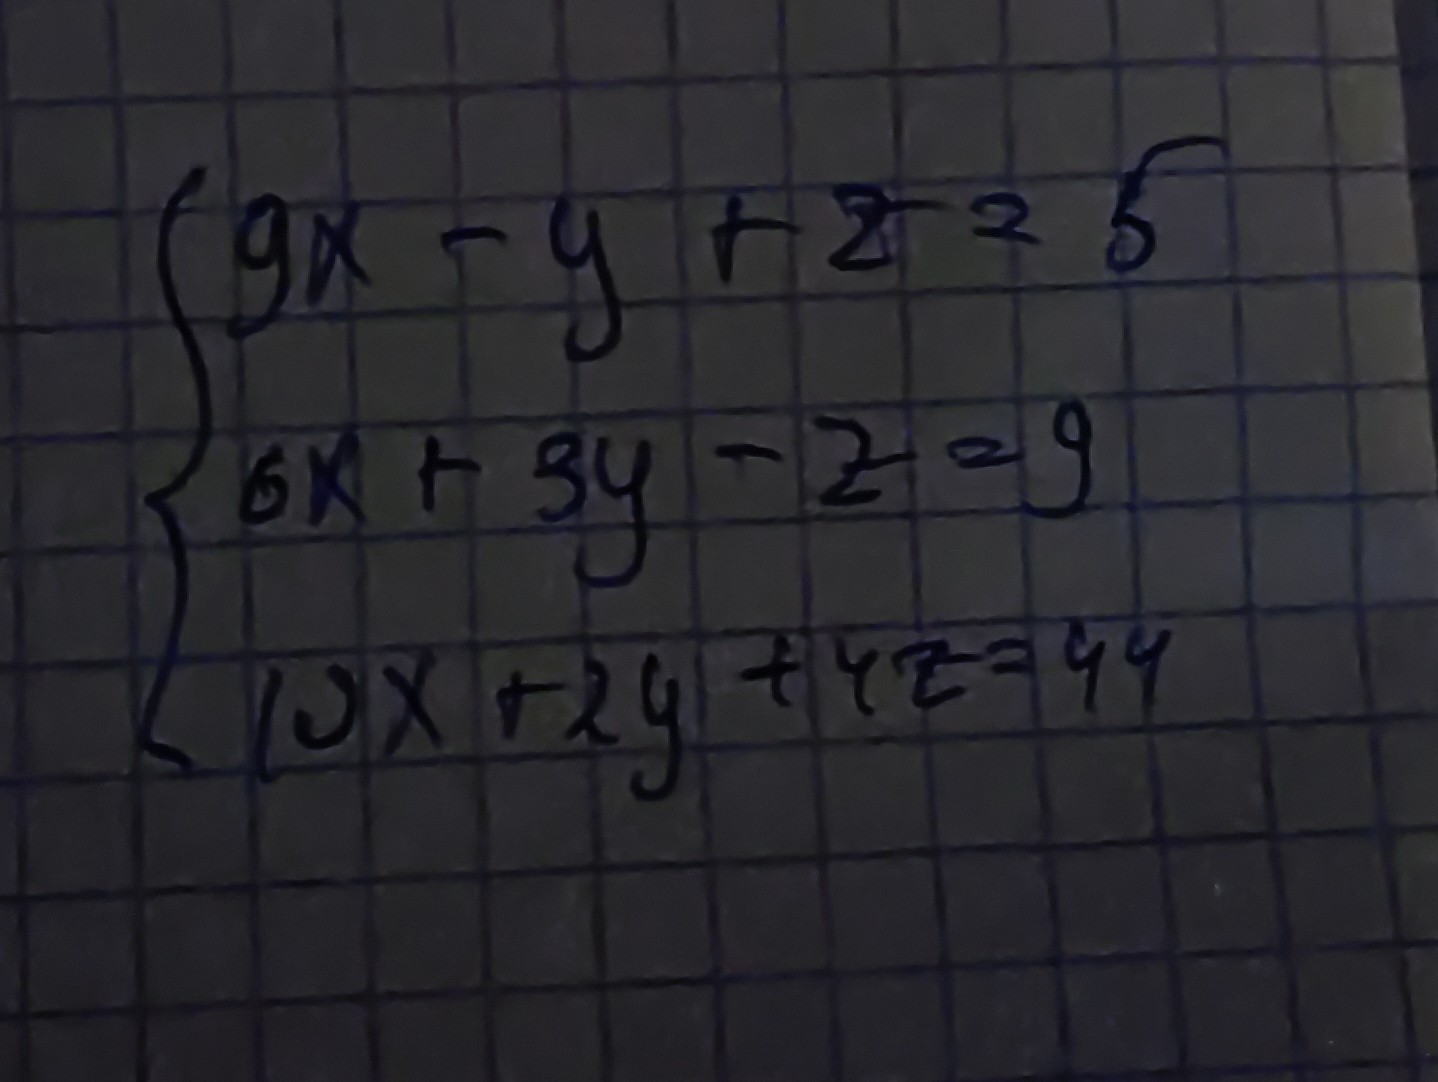 9x - y + z = 5
6x + 3y - z = 9
10x + 2y + 4z = 44